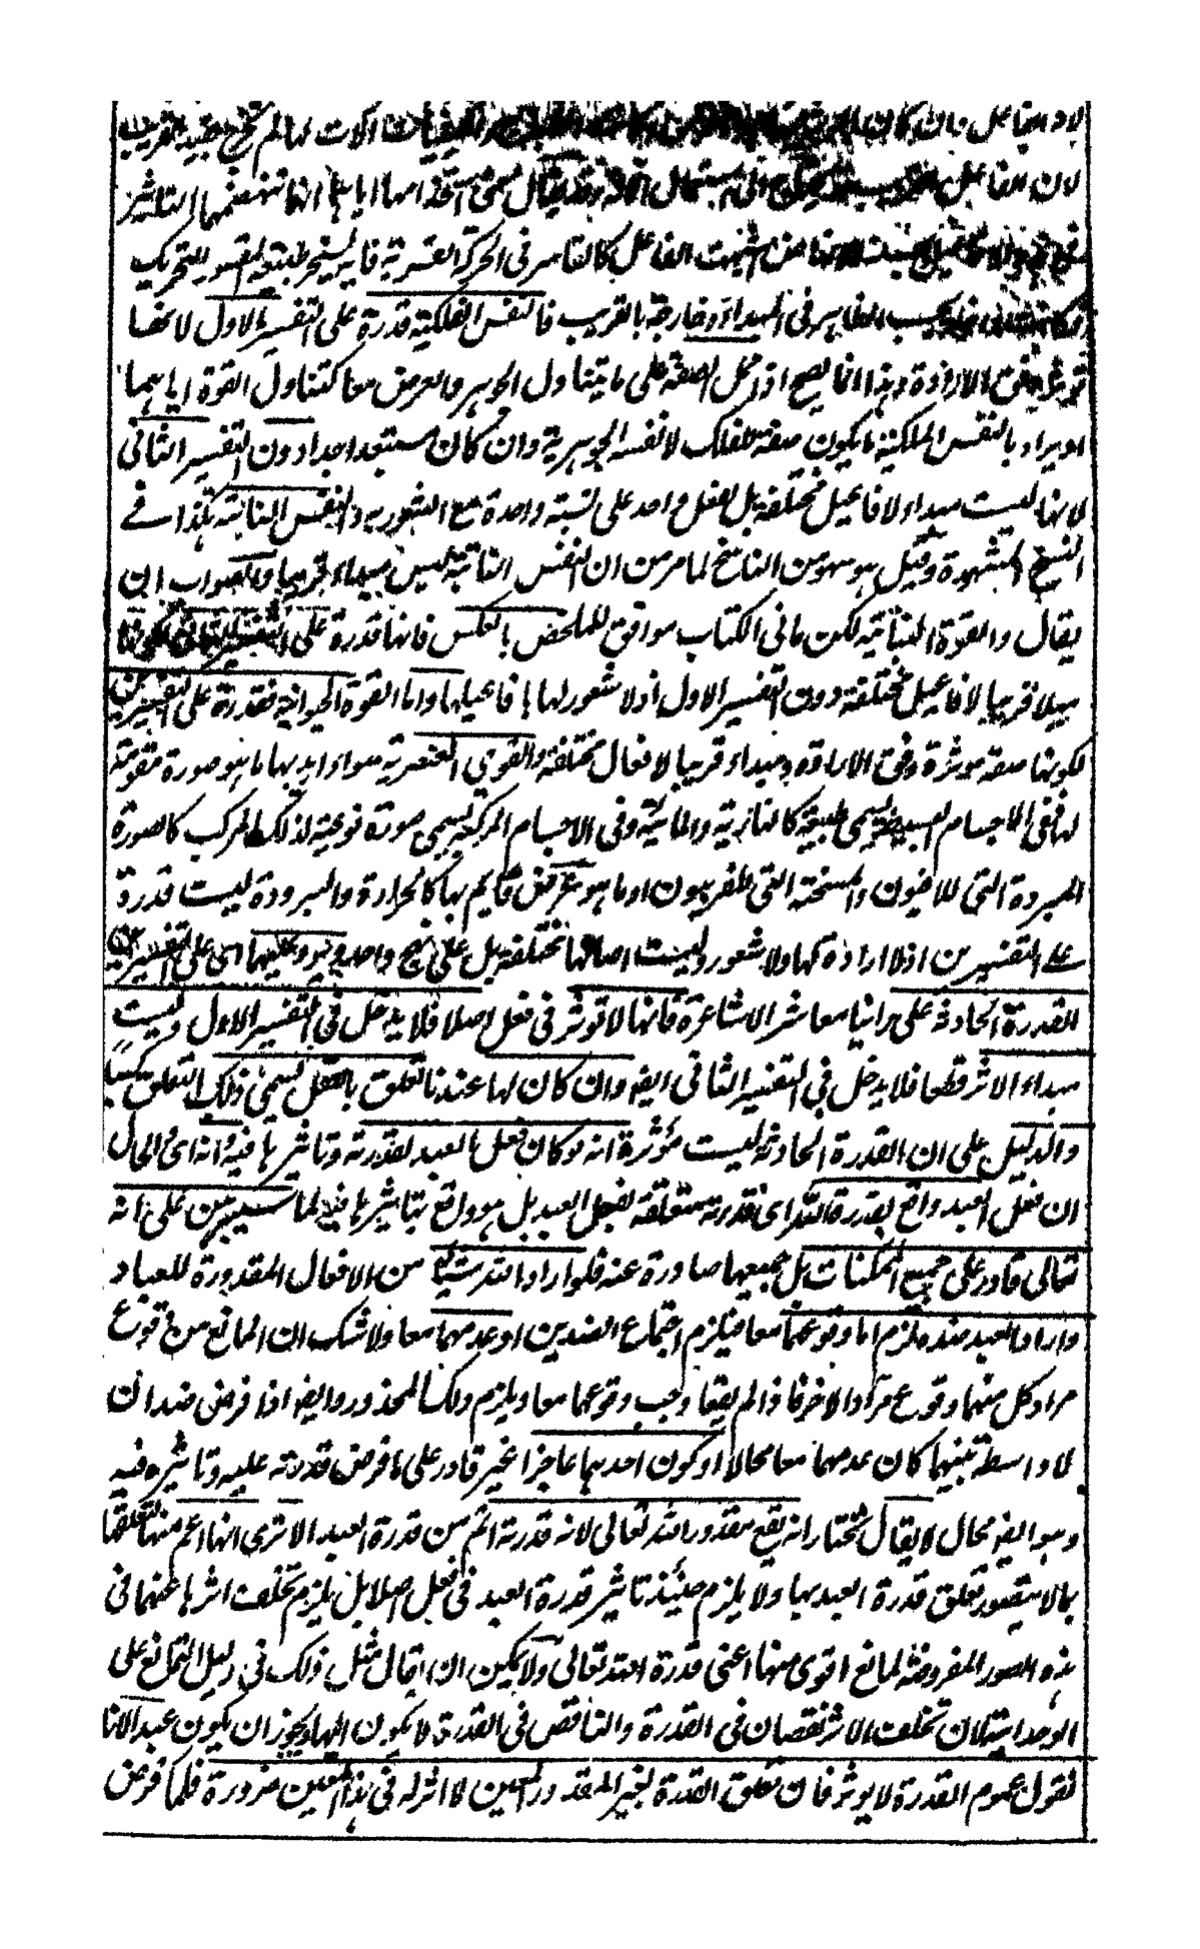 الآلات لها لم
لان الفاعل
الفاعل كالقاسر فى الحركة القسرية فانه
المبداء وخارجة بالقريب فالنفس الفلكية قدرة على التفسير الاول لانها
الارادة وهذا انما يصح اذا حمل الصفة على ما يتناول الجوهر والعرض معا كتناول القوة اياهما
او يراد بالنفس الفلكية ما يكون صفة للفلك لا نفسه الجوهرية وان كان مستبعدا جدا دون التفسير الثانى
لانها ليست مبداء لافاعيل مختلفة بل لفعل واحد على نسبة واحدة مع الشعور به والنفس النباتية هكذا فے
النسخ المشهورة وقيل هو سهو من الناسخ لما مر من ان النفس النباتية ليس مبداء قريبا والصواب ان
يقال والقوة النباتية لكن ما فى الكتاب موافق للملخص بالعكس فانها قدرة على
مبداء قريبا لافاعيل مختلفة دون التفسير الاول اذ لا شعور لها بافاعيلها واما القوة الحيوانية فقدرة على التفسيرين
لكونها صفة موثرة وفق الارادة ومبداء قريبا لافعال مختلفة والقوى العنصرية سواء اريد بها ما هو صورة مقومة
لها ففى الاجسام البسيطة يسمى طبيعة كالنارية والمائية وفى الاجسام المركبة يسمى صورة نوعية لذلك المركب كالصورة
المبردة التى للافيون والمسخنة التى للفربيون او ما هو عرض قايم بها كالحرارة والبرودة ليست قدرة
علے التفسيرين اذ لا ارادة لها ولا شعور وليست افعالها مختلفة بل على نهج واحد
القدرة الحادثة على راينا معاشر الاشاعرة فانها لا توثر فى فعل اصلا فلا يدخل فى التفسير الاول وليست
مبداء الاثر قطعا فلا يدخل فى التفسير الثانى ايضا وان كان لها عندنا تعلق بالفعل يسمى ذلك التعلق كسبا
والدليل على ان القدرة الحادثة ليست مؤثرة انه لو كان فعل العبد بقدرته وتاثيرها فيه وانه اى والحال
ان فعل العبد واقع بقدرة الله اى قدرته متعلقة بفعل العبد بل هو واقع بتاثيرها فيه لما سنبرهن على انه
تعالى قادر على جميع الممكنات بل جميعها صادرة عنه فلو اراد الله شيئا من الافعال المقدورة للعباد
واراد العبد ضده لزم اما وقوعهما معا فيلزم اجتماع الضدين او عدمهما معا ولا شك ان المانع من وقوع
مراد كل منهما وقوع مراد الاخر فاذا لم يقعا وجب وقوعهما معا ويلزم ذلك المحذور وايضا اذا فرض ضدان
لا واسطة بينهما كان عدمهما معا محالا او كون احدهما عاجزا غير قادر على ما فرض قدرته عليه وتاثيره فيه
وهو ايضا محال لا يقال نختار انه يقع مقدور الله تعالى لان قدرته اتم من قدرة العبد الا ترى انها اعم منها لتعلقها
بما لا يتصور تعلق قدرة العبد بها ولا يلزم حينئذ تاثير قدرة العبد فى فعل اصلا بل يلزم تخلف اثرها عنها فى
هذه الصور المفروضة لمانع اقوى منها اعنى قدرة الله تعالى ولا يمكن ان يقال مثل ذلك فى دليل التمانع على
الوحدانية لان تخلف الاثر نقصان فى القدرة والناقص فى القدرة لا يكون الها ويجوز ان يكون عبدا لانا
نقول عموم القدرة لا يوثر فان تعلق القدرة بغير المقدور المعين لا اثر له فى هذا المعين ضرورة فلما فرض